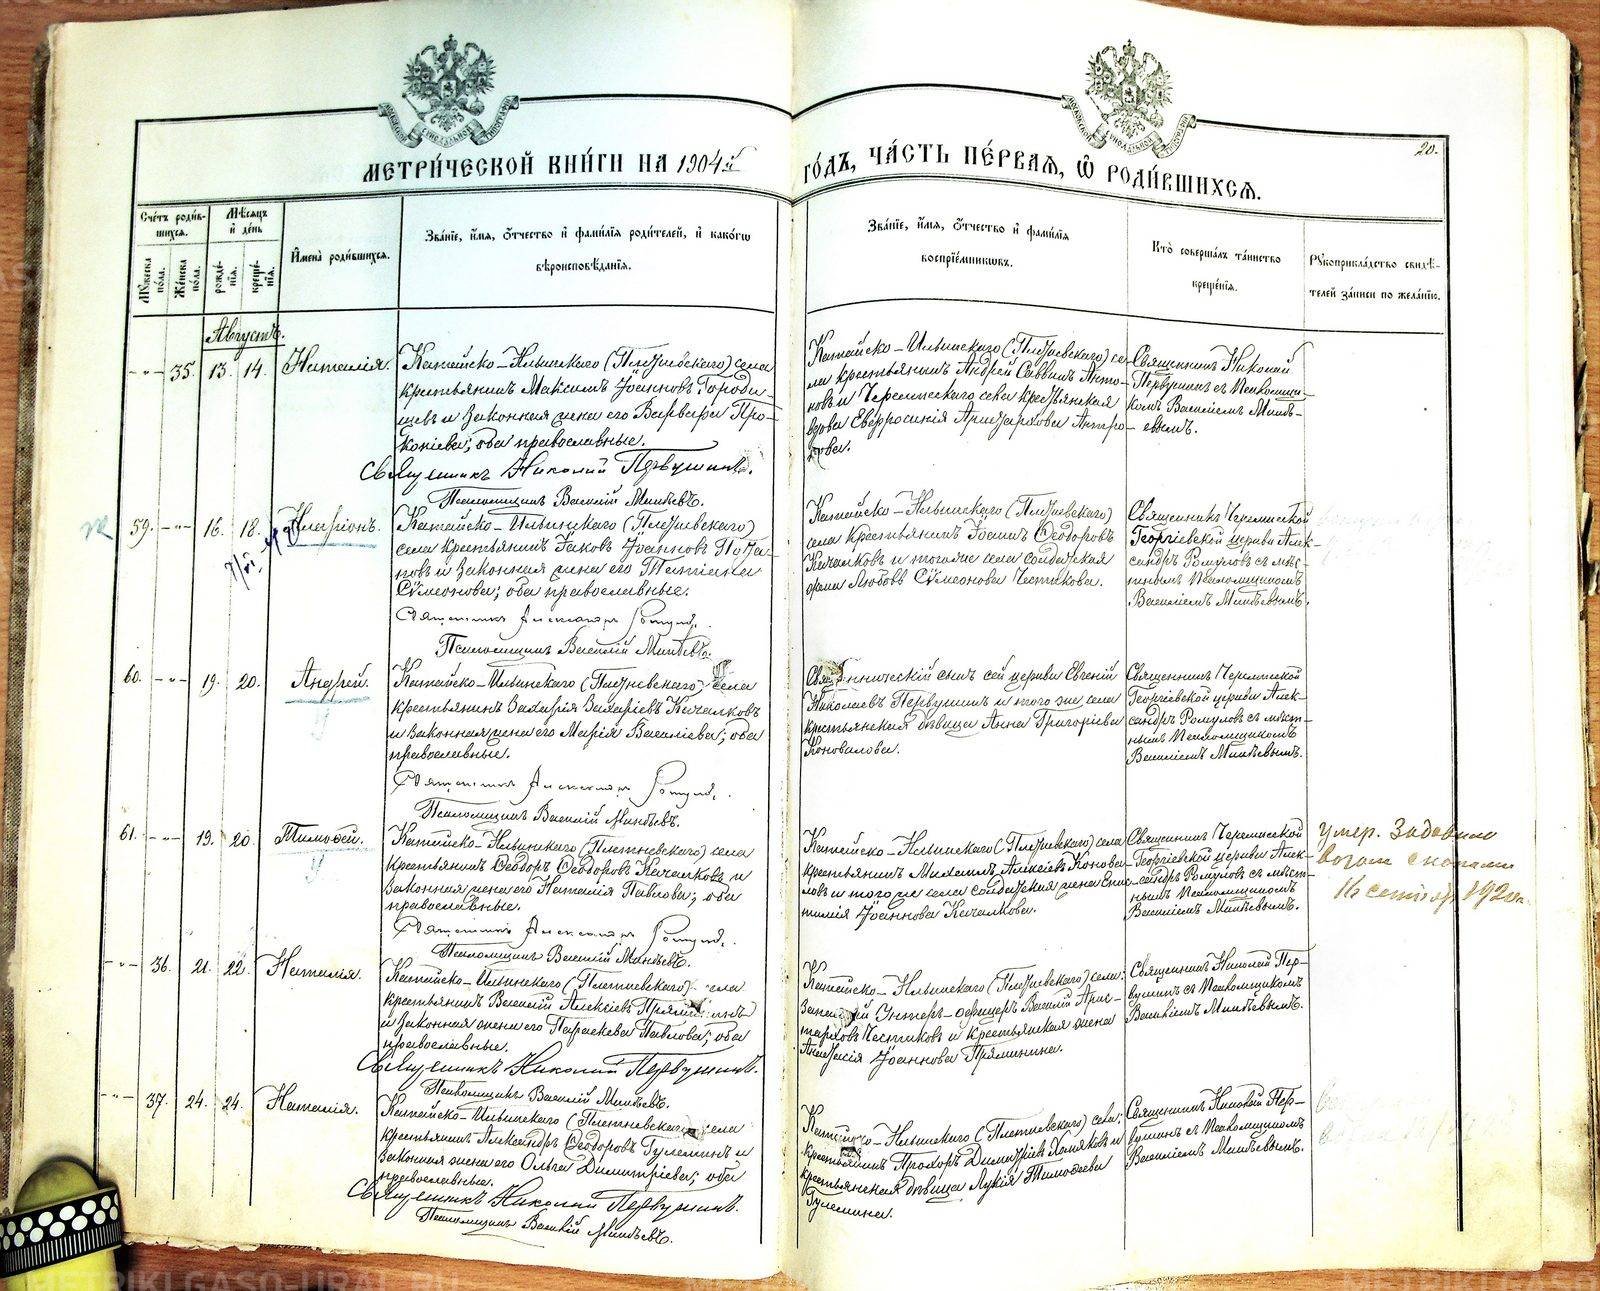 МЕТРИ́ЧЕСКОЙ КНИ́ГИ НА 1904й
ГО́ДЪ, ЧА́СТЬ ПЕ́РВАЯ, Ѽ РОДИ́ВШИХСЯ.
20.
Сче́тъ роди́в-
шихся.
Мѣ́сяцъ
и҆ де́нь
Мꙋ́жеска по́ла.
Же́нска по́ла.
рожде́-
нїѧ.
креще́-
нїѧ.
И҆мена̀ роди́вшихсѧ.
Зва́нїе, и҆́мѧ, ѻ҆́тчество и҆ фамі́лїѧ роди́телей, и҆ како́гѡ
вѣроисповѣ́данїѧ.
Зва́нїе, и҆́мѧ, ѻ҆́тчество и҆ фамі́лїѧ
воспрїе́мникѡвъ.
Кто̀ соверша́лъ та́инство
креще́нїѧ.
Рꙋкоприкла́дство свидѣ́-
телей за́писи по жела́нїю.
Августъ.
-"- 35. 13. 14. Наталія.
Катайско-Ильинскаго (Плетневскаго) села
крестьянинъ Максимъ Іоанновъ Городи-
щевъ и законная жена его Варвара Про-
копіева; оба православные.
Священникъ Николай Первушинъ.
Псаломщикъ Василій Манѣевъ.
Катайско-Ильинскаго (Плетневскаго) се-
ла крестьянинъ Андрей Саввинъ Анто-
новъ и Черемисскаго села крестьянская
вдова Евфросинія Аристархова Антро-
пова.
Священникъ Николай
Первушинъ съ Псаломщи-
комъ Василіемъ Манѣ-
евымъ.
59. -"- 16. 18. Иларіонъ.
Катайско-Ильинскаго (Плетневскаго)
села крестьянинъ Іаковъ Іоанновъ Пота-
повъ и законная жена его Татіана
Сѵмеонова; оба православные.
Священникъ Александръ Ромуловъ.
Псаломщикъ Василій Манѣевъ.
Катайско-Ильинскаго (Плетневскаго)
села крестьянинъ Іоаннъ Ѳеодоровъ
Качалковъ и тогоже села солдатская
жена Любовь Сѵмеонова Честикова.
Священникъ Черемисской
Георгіевской церкви Алек-
сандръ Ромуловъ съ мѣст-
нымъ Псаломщикомъ
Василіемъ Манѣевымъ.
60. -"- 19. 20. Андрей.
Катайско-Ильинскаго (Плетневскаго) села
крестьянинъ Захарія Захаріевъ Качалковъ
и законная жена его Марія Василіева; оба
православные.
Священникъ Александръ Ромуловъ.
Псаломщикъ Василій Манѣевъ.
Священническій сынъ сей церкви Евгеній
Николаевъ Первушинъ и того же села
крестьянская дѣвица Анна Григоріева
Коновалова.
Священникъ Черемисской
Георгіевской церкви Алек-
сандръ Ромуловъ съ мѣст-
нымъ Псаломщикомъ
Василіемъ Манѣевымъ.
61. -"- 19. 20. Тимоѳей.
Катайско-Ильинскаго (Плетневскаго) села
крестьянинъ Ѳеодоръ Ѳеодоровъ Качалковъ и
законная жена его Наталія Павлова; оба
православные.
Священникъ Александръ Ромуловъ.
Псаломщикъ Василій Манѣевъ.
Катайско-Ильинскаго (Плетневскаго) села
крестьянинъ Михаилъ Алексіевъ Коновал-
овъ и того же села солдатская жена Епис-
тимія Іоаннова Качалкова.
Священникъ Черемисской
Георгіевской церкви Алек-
сандръ Ромуловъ съ мѣст-
нымъ Псаломщикомъ
Василіемъ Манѣевымъ.
умер. Задавило
возом
16 сентябр 1920
-"- 36. 21. 22. Наталія.
Катайско-Ильинскаго (Плетневскаго) села
крестьянинъ Василій Алексіевъ Прямининъ
и законная жена его Параскева Павлова; оба
православные.
Священникъ Николай Первушинъ.
Псаломщикъ Василій Манѣевъ.
Катайско-Ильинскаго (Плетневскаго) села:
Запасный Унтеръ-офицеръ Василій Арис-
тарховъ Честиковъ и крестьянская жена
Анастасія Іоаннова Пряминина.
Священникъ Николай Пер-
вушинъ съ Псаломщикомъ
Василіемъ Манѣевымъ.
-"- 37. 24. 24. Наталія.
Катайско-Ильинскаго (Плетневскаго) села
крестьянинъ Александръ Ѳеодоровъ Гулеминъ и
законная жена его Ольга Димитріева; оба
православные.
Священникъ Николай Первушинъ.
Псаломщикъ Василій Манѣевъ.
Катайско-Ильинскаго (Плетневскаго) села:
крестьянинъ Прохоръ Димитріевъ Хомяковъ и
крестьянская дѣвица Лукія Тимоѳеева
Гулемина.
Священникъ Николай Пер-
вушинъ съ Псаломщикомъ
Василіемъ Манѣевымъ.
METRIKI.GASO-URAL.RU